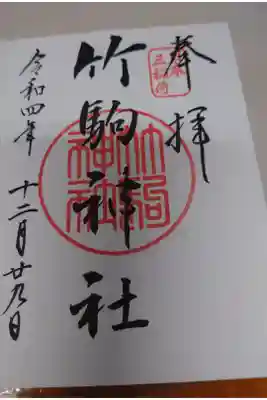 奉拝
竹駒神社
令和四年 十二月廿九日
竹駒神社